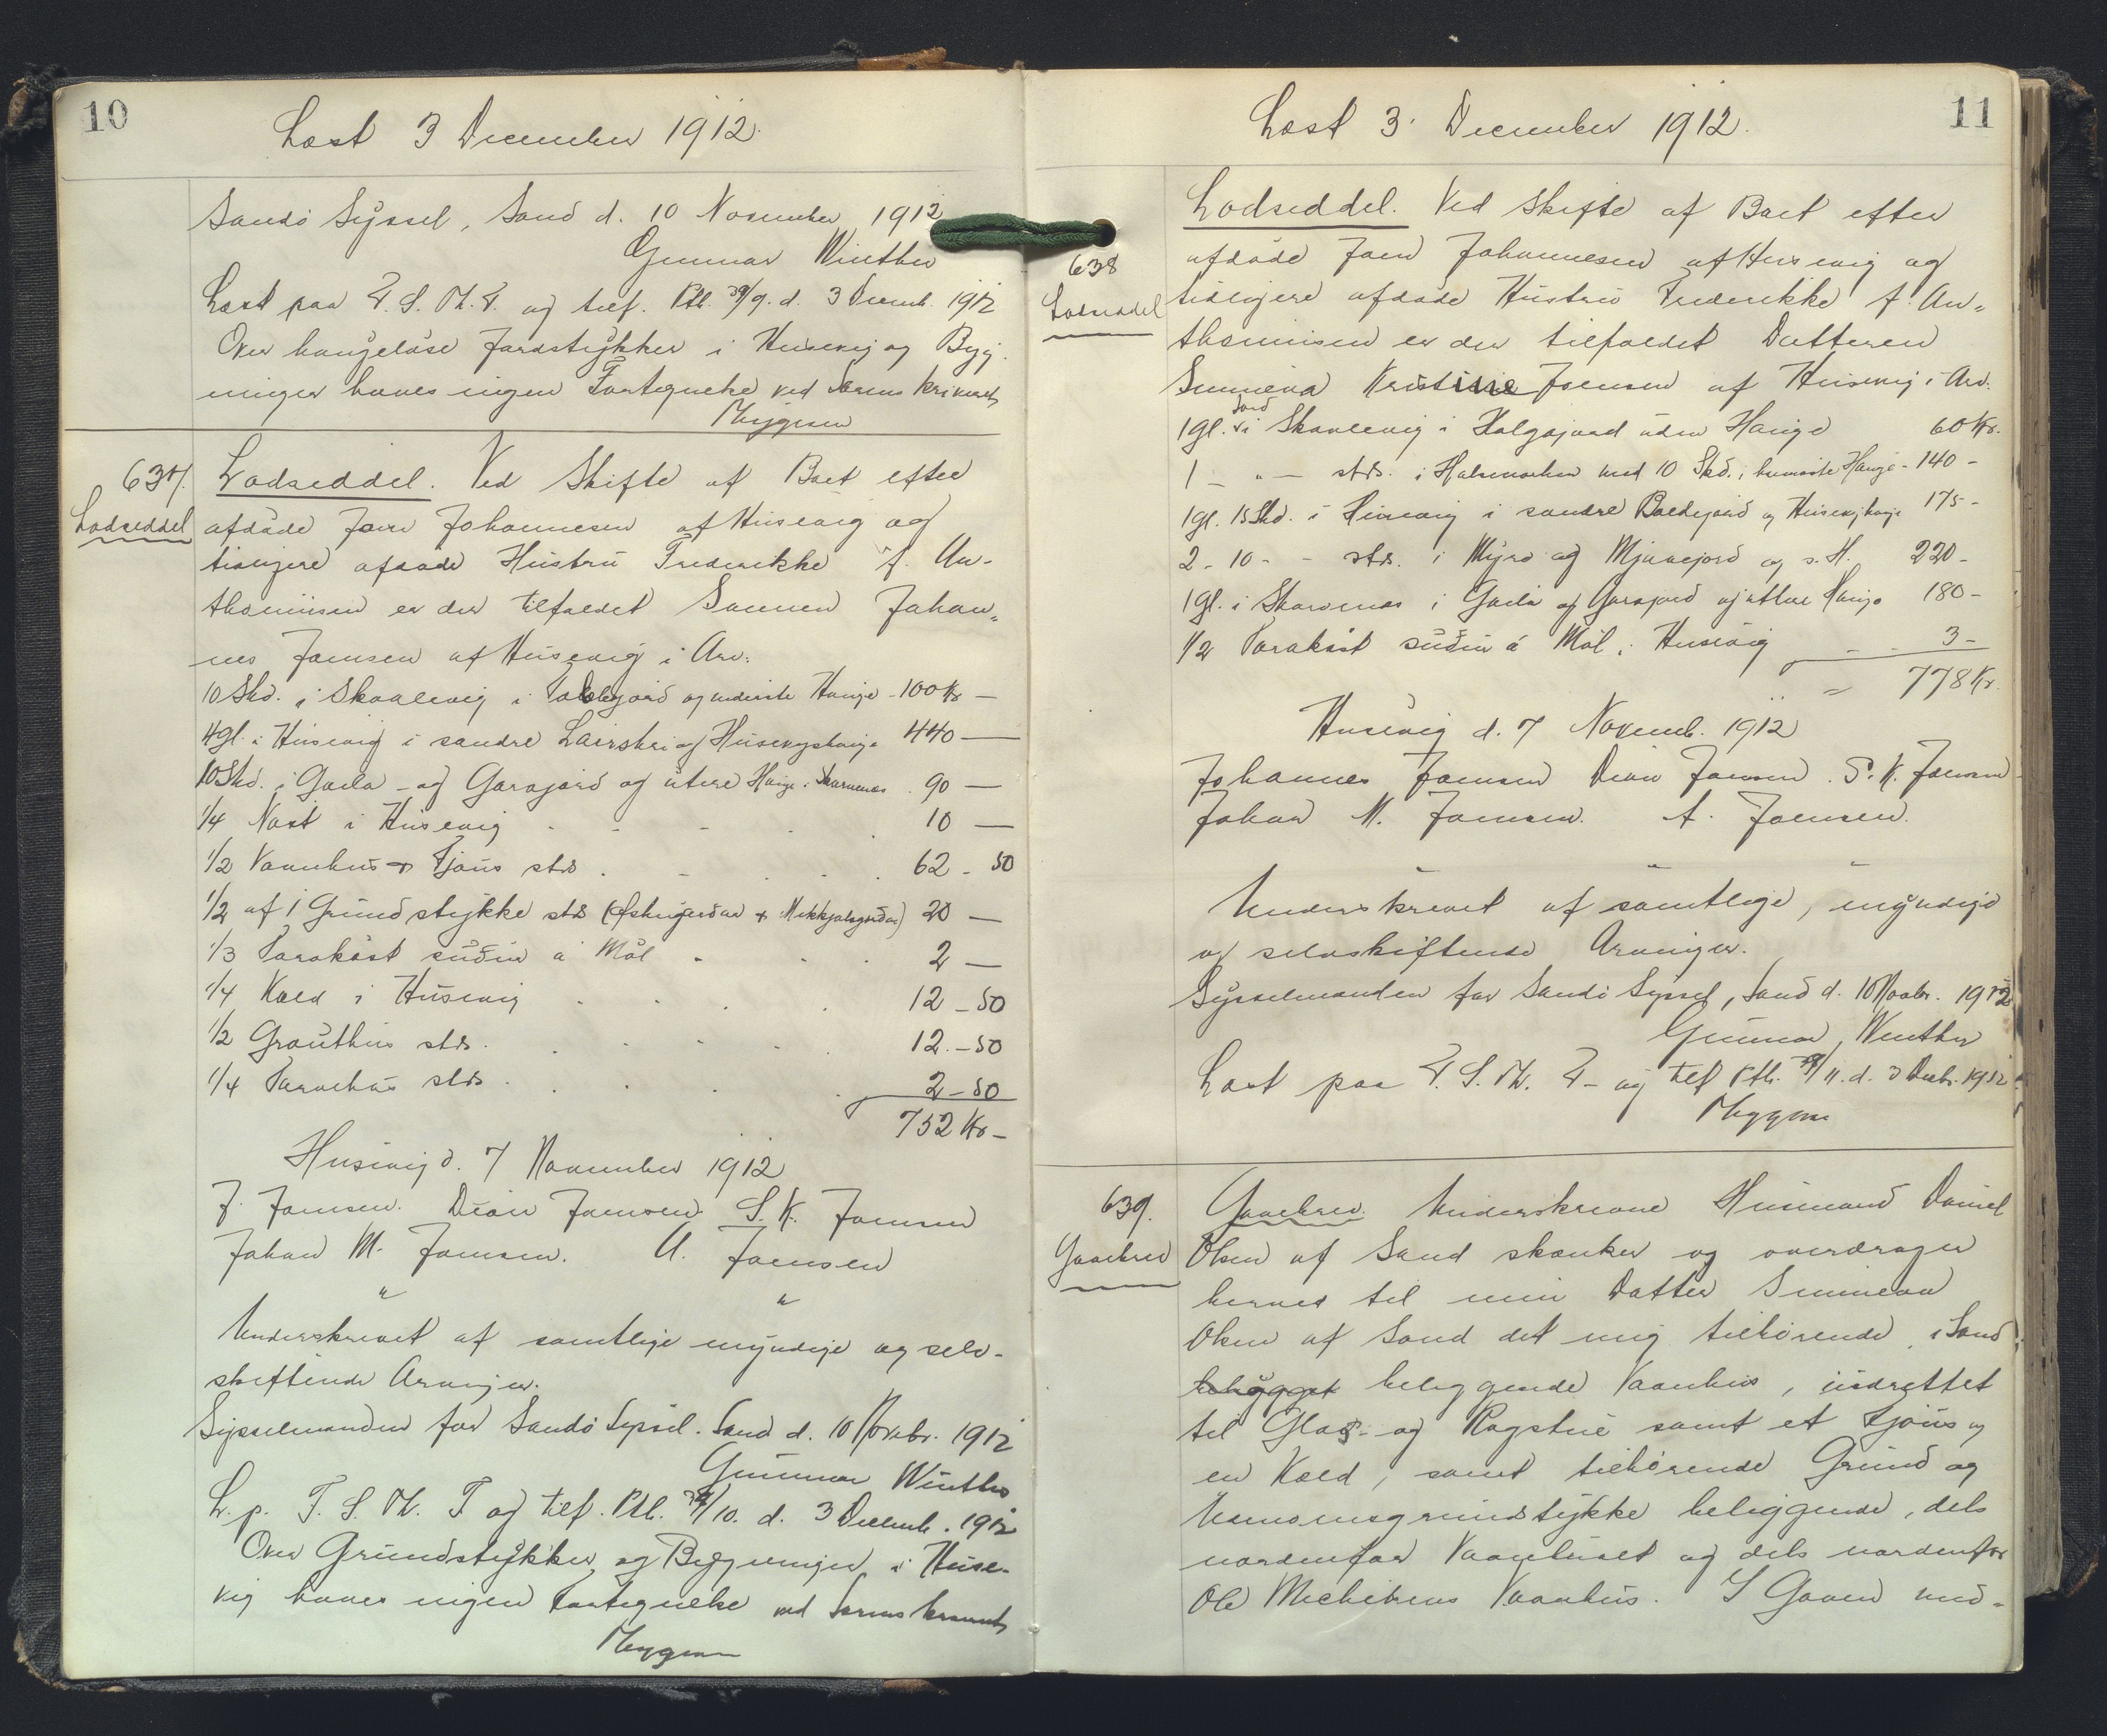 10
Læst 3 December 1912.
Sandø Syssel, Sand d. 10 November 1912
Gunnar Winther
Læst paa F. S. Th. F. og tilf. Ptl. 39/9. d. 3 Decemb. 1912
Over haugeløse Jordstykker i Husevig og Byg-
ninger haves ingen Fortegnelse ved Sorenskriveriet
637.
Lodseddel
Lodseddel. Ved Skifte af Boet efter
afdøde Joen Johannesen af Husevig og
tidligere afdøde Hustru Frederikke f. An-
thoniisen er der tilfaldet Sønnen Johan-
nes Joensen af Husevig i Arv:
10 Skd. i Skaalevig i og nederste Hauge - 100 Kr -
4 gl. i Husevig i søndre og Husevigshauge 440 -
10 Skd. i Gaila - og Garajord og uttere Hauge i Skarvenæs . 90 -
1/4 Nøst i Husevig 10 -
1/2 Vaanhus & Fjøus stds . 62 - 50
1/2 af 1 Grundstykke stds 20 -
1/3 Torakást suður á Møl 2 -
1/4 Kæld i Husevig 12 - 50
1/2 Grouthus stds. 12. - 50
1/4 Tørvehus stds . 2 - 50
752 Kr -
Husevig d. 7 November 1912
J. Joensen. Dion Joensen S. K. Joensen
Johan M. Joensen. A. Joensen
" "
Underskrevet af samtlige myndige og selv-
skiftende Arvinger.
Sysselmanden for Sandø Syssel. Sand d. 10 Novbr. 1912
Gunnar Winther
L. p. F. S. Th. F og tilf. Ptl. 39/10. d. 3 Decemb. 1912
Over Grundstykker og Bygninger i Huse-
vig haves ingen Fortegnelse ved Sorenskriveriet
11
Læst 3. December 1912.
638
Lodseddel
Lodseddel. Ved Skifte af Boet efter
afdøde Joen Johannesen af Husevig og
tidligere afdøde Hustru Frederikke f. An-
thoniisen er der tilfaldet Datteren
Sunneva Kristine Joensen af Husevig i Arv.
1 gl. Jord i Skaalevig i Holgajord uden Hauge 60 Kr.
1 - " - stds. i Halsemarken med 10 Skd. i Hauge - 140 -
1 gl. 15 Skd. i Husevig i søndre og Husevighauge 175 -
2 - 10 - - stds. i Myre og Mjavejord og s. H. 220 -
1 gl. i Skarvenæs i Gaila og Garajord og uttere Hauge 180 -
1/2 Torakást suður á Møl i Husevig 3 -
778 Kr.
Husevig d. 7 Novemb. 1912
Johannes Joensen Dion Joensen . S. K. Joensen
Johan M. Joensen. A. Joensen.
Underskrevet af samtlige, myndige
og selvskiftende Arvinger.
Sysselmanden for Sandø Syssel, Sand d. 10 Novbr. 1912
Gunnar Winther
Læst paa F. S. Th. F - og tilf Ptl. 39/11. d. 3 Decbr. 1912
639.
Gavebrev
Gavebrev. Underskrevne Husmand Daniel
Olsen af Sand skænker og overdrager
herved til min Datter Sunneva
Olsen af Sand det mig tilhørende i Sand
bebygget beliggende Vaanhus, indrettet
til Glas- og Røgstue samt et Fjøus og
en Kæld, samt tilhørende Grund og
beliggende, dels
nordenfor Vaanhuset og dels nordenfor
Ole Michelsens Vaanhus. I Gaven med-